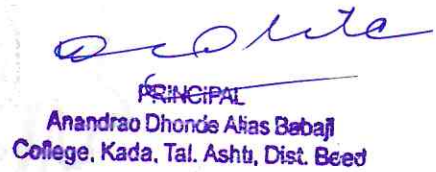 PRINCIPAL
Anandrao Dhonde Alias Babaji
College, Kada, Tal. Ashti, Dist. Beed